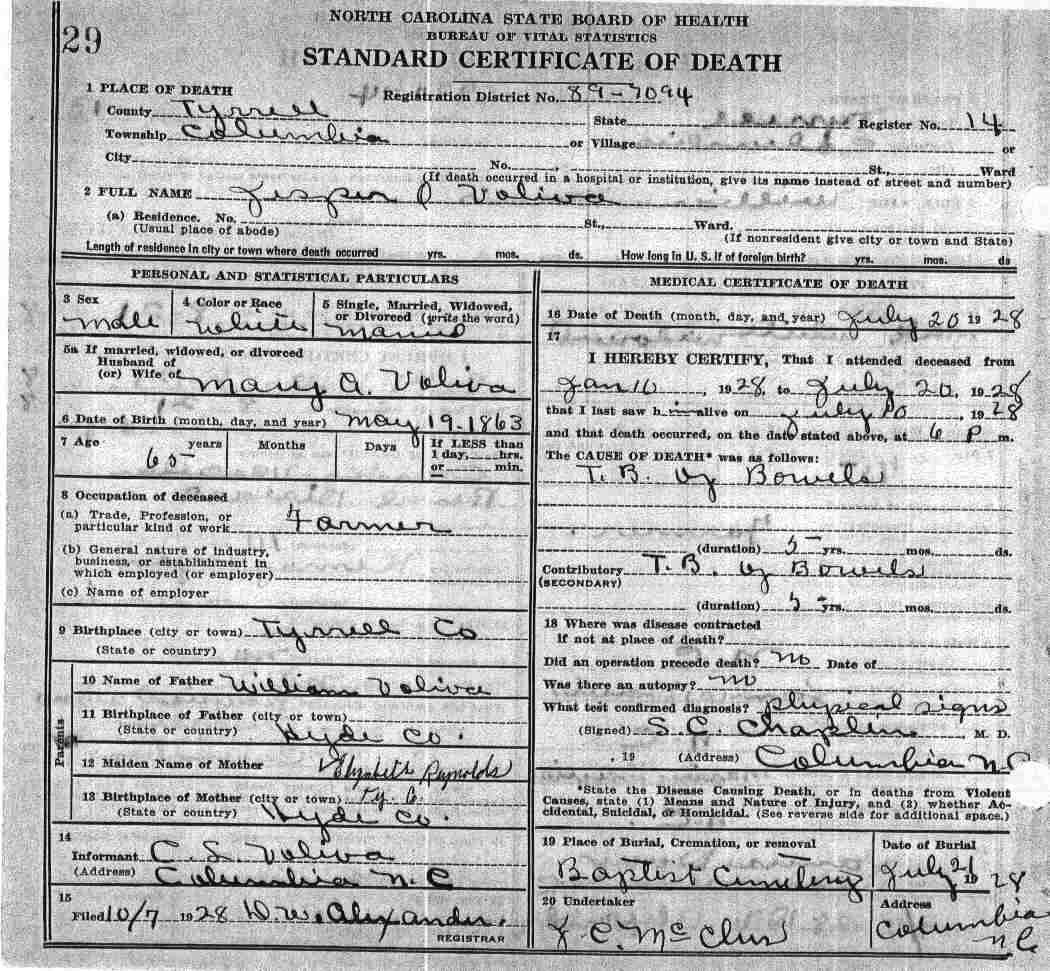 29
NORTH CAROLINA STATE BOARD OF HEALTH
BUREAU OF VITAL STATISTICS
STANDARD CERTIFICATE OF DEATH
1 PLACE OF DEATH
Registration District No. 89-7094
County Tyrrell State Register No. 14
Township Columbia or Village or
City No. , St., Ward
(If death occurred in a hospital or institution, give its name instead of street and number)
2 FULL NAME Voliva
(a) Residence. No. St., Ward.
(Usual place of abode) (If nonresident give city or town and State)
Length of residence in city or town where death occurred yrs. mos. ds. How long in U. S. if of foreign birth? yrs. mos. ds
PERSONAL AND STATISTICAL PARTICULARS
3 Sex 4 Color or Race 5 Single, Married, Widowed, or Divorced (write the word)
Male White Married
5a If married, widowed, or divorced
Husband of
(or) Wife of Mary A. Voliva
6 Date of Birth (month, day, and year) May 19-1863
7 Age years Months Days If LESS than 1 day, hrs. or min.
65
8 Occupation of deceased
(a) Trade, Profession, or
particular kind of work Farmer
(b) General nature of industry,
business, or establishment in
which employed (or employer)
(c) Name of employer
9 Birthplace (city or town) Tyrrell Co
(State or country)
Parents
10 Name of Father William Voliva
11 Birthplace of Father (city or town)
(State or country) Hyde Co.
12 Maiden Name of Mother Elyzabeth Reynolds
13 Birthplace of Mother (city or town) Ty. Co.
(State or country) Hyde Co.
14
Informant C. S. Voliva
(Address) Columbia N.C
15
Filed 10/7 1928 D. W. Alexander.
REGISTRAR
MEDICAL CERTIFICATE OF DEATH
16 Date of Death (month, day, and year) July 20 1928
17
I HEREBY CERTIFY, That I attended deceased from
Jan 10, 1928, to July 20, 1928
that I last saw him alive on July, 1928
and that death occurred, on the date stated above, at 6 P m.
The CAUSE OF DEATH* was as follows:
T. B. of Bowels
(duration) 5 yrs. mos. ds.
Contributory T. B. of Bowels
(SECONDARY)
(duration) 5 yrs. mos. ds.
18 Where was disease contracted
if not at place of death?
Did an operation precede death? No Date of
Was there an autopsy? No
What test confirmed diagnosis? physical signs
(Signed) S. C. Chaplin M. D.
, 19 (Address) Columbia N.C
*State the Disease Causing Death, or in deaths from Violent
Causes, state (1) Means and Nature of Injury, and (2) whether Ac-
cidental, Suicidal, or Homicidal. (See reverse side for additional space.)
19 Place of Burial, Cremation, or removal Date of Burial
Baptist Cemetery July 21 1928
20 Undertaker Address
J C. Columbia
N C